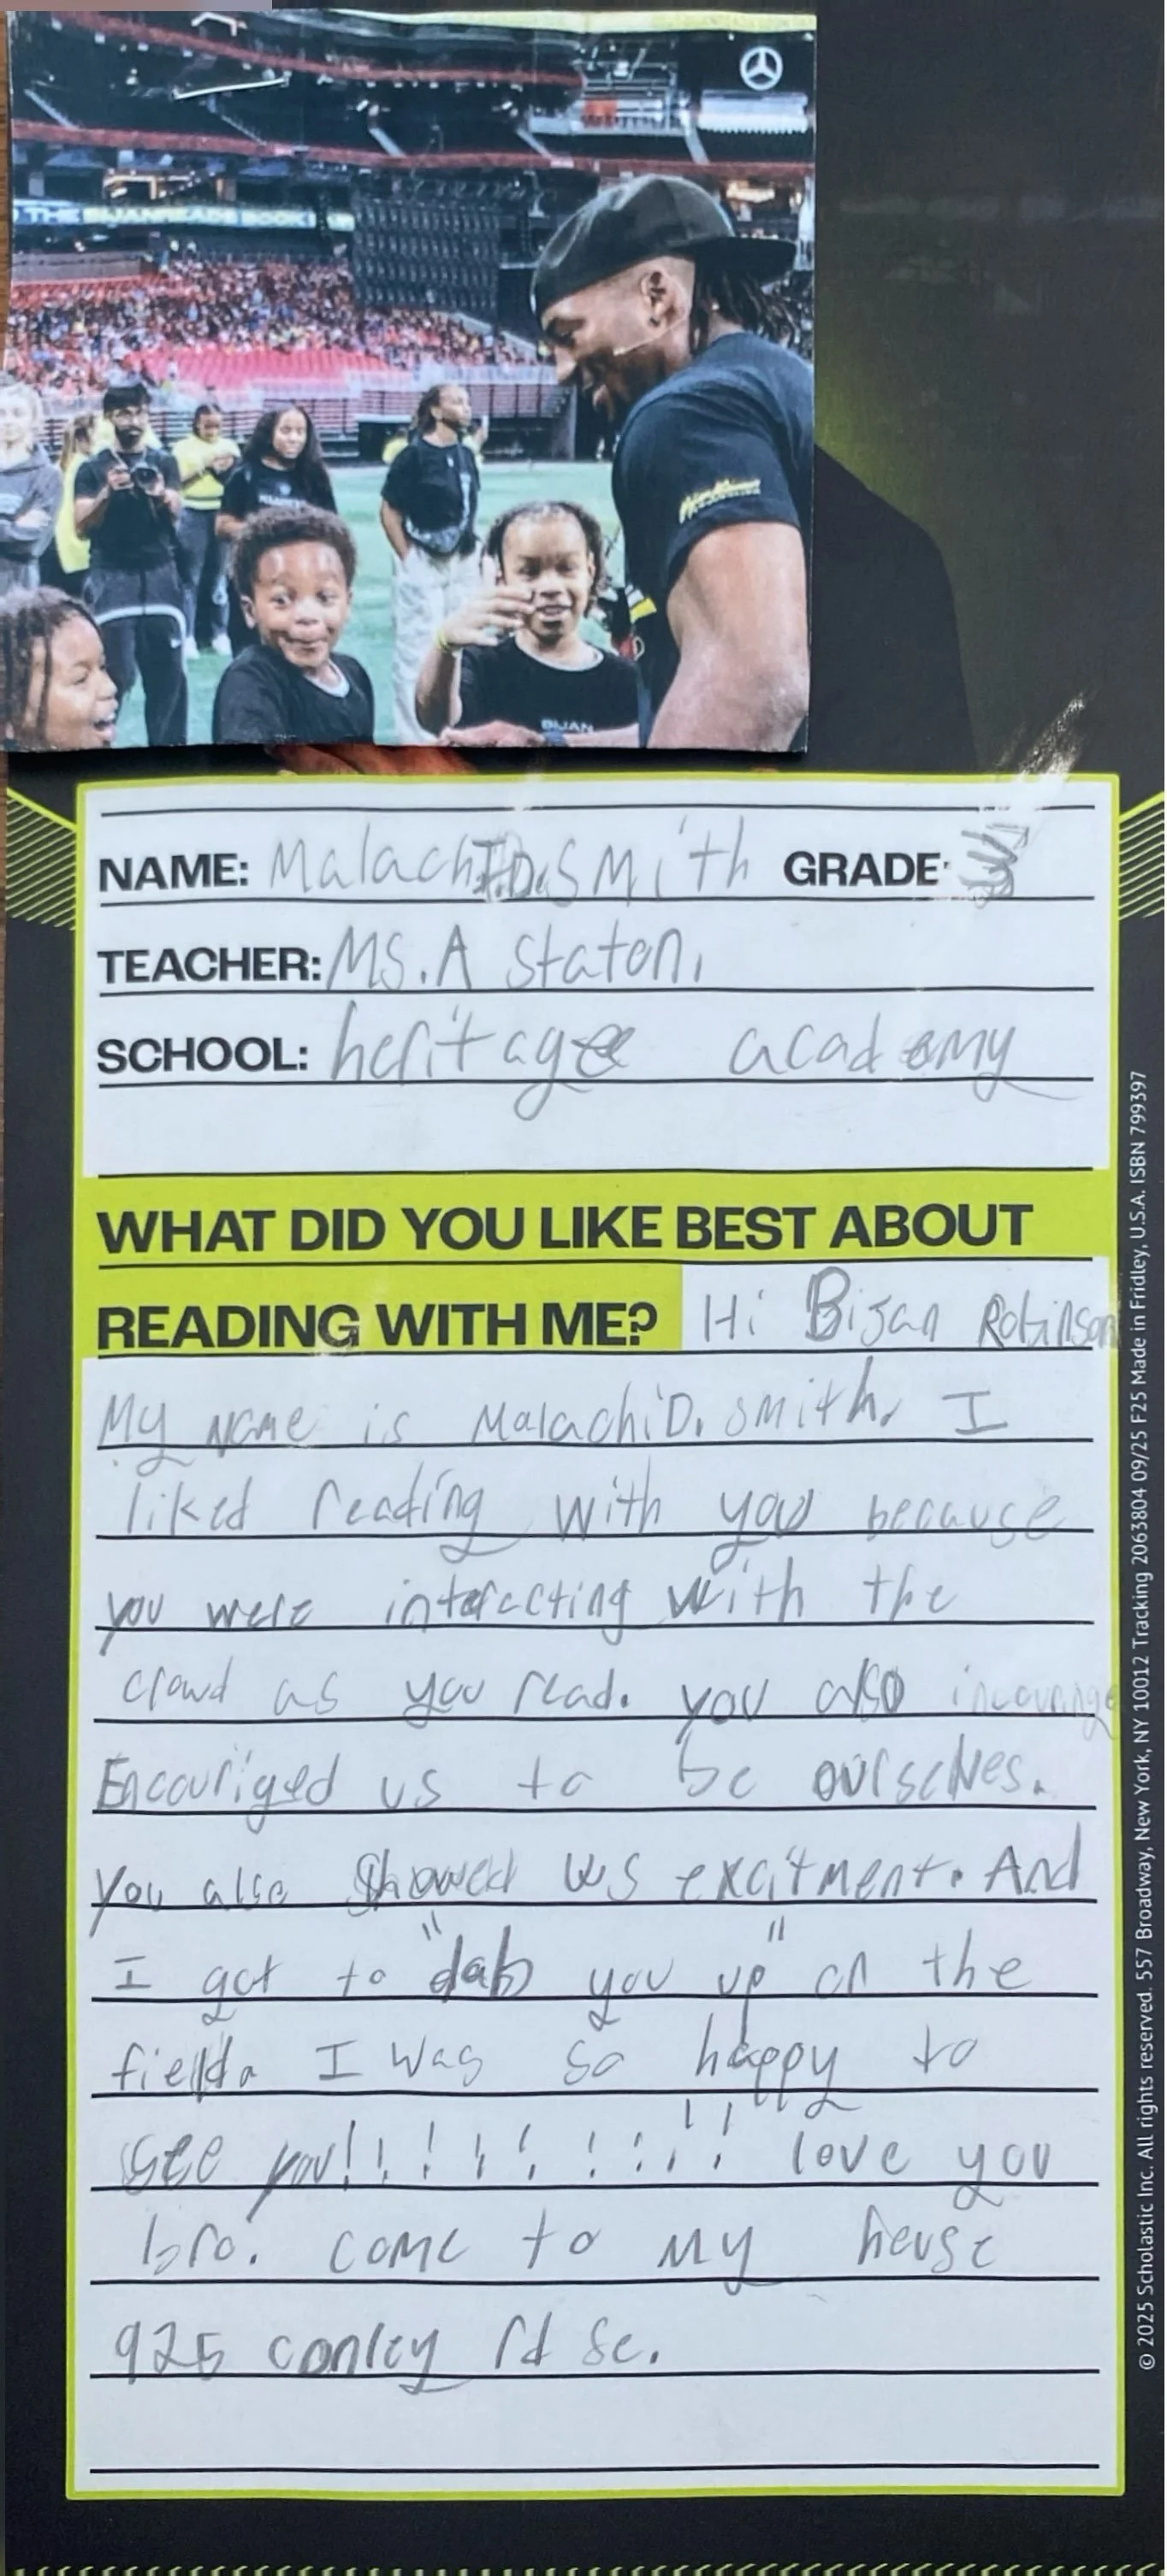 THE BIJAN READS BOOK
BIJAN
NAME: Malachi D. Smith GRADE: 3
TEACHER: MS. A Staton.
SCHOOL: heritage academy
WHAT DID YOU LIKE BEST ABOUT
READING WITH ME? Hi Bijan Robinson
My name is Malachi D. smith. I
liked reading with you because
you were interacting with the
crowd as you read. you also incourage
Encouriged us to be ourselves.
you also showed us excitment. And
I got to "dab you up" on the
field. I was so happy to
see you!!!!!!!!!! love you
bro. come to my house
925 conley rd se.
© 2025 Scholastic Inc. All rights reserved. 557 Broadway, New York, NY 10012 Tracking 2063804 09/25 F25 Made in Fridley, U.S.A. ISBN 799397